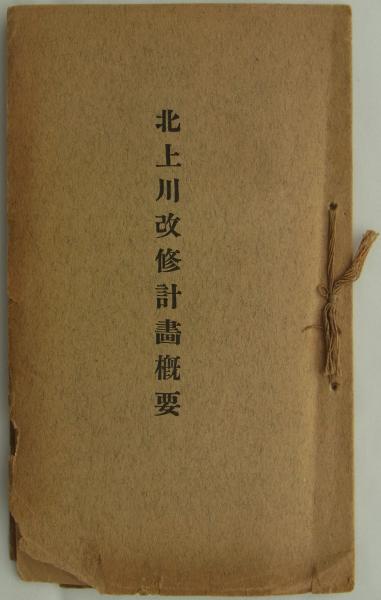 北上川改修計畵概要